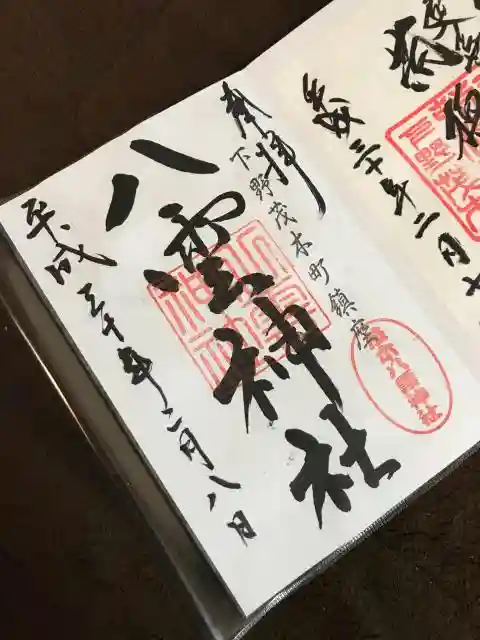 奉拝
下野茂木町鎮座
八雲神社
平成三十年二月八日
茂木八雲神社
平成三十年二月